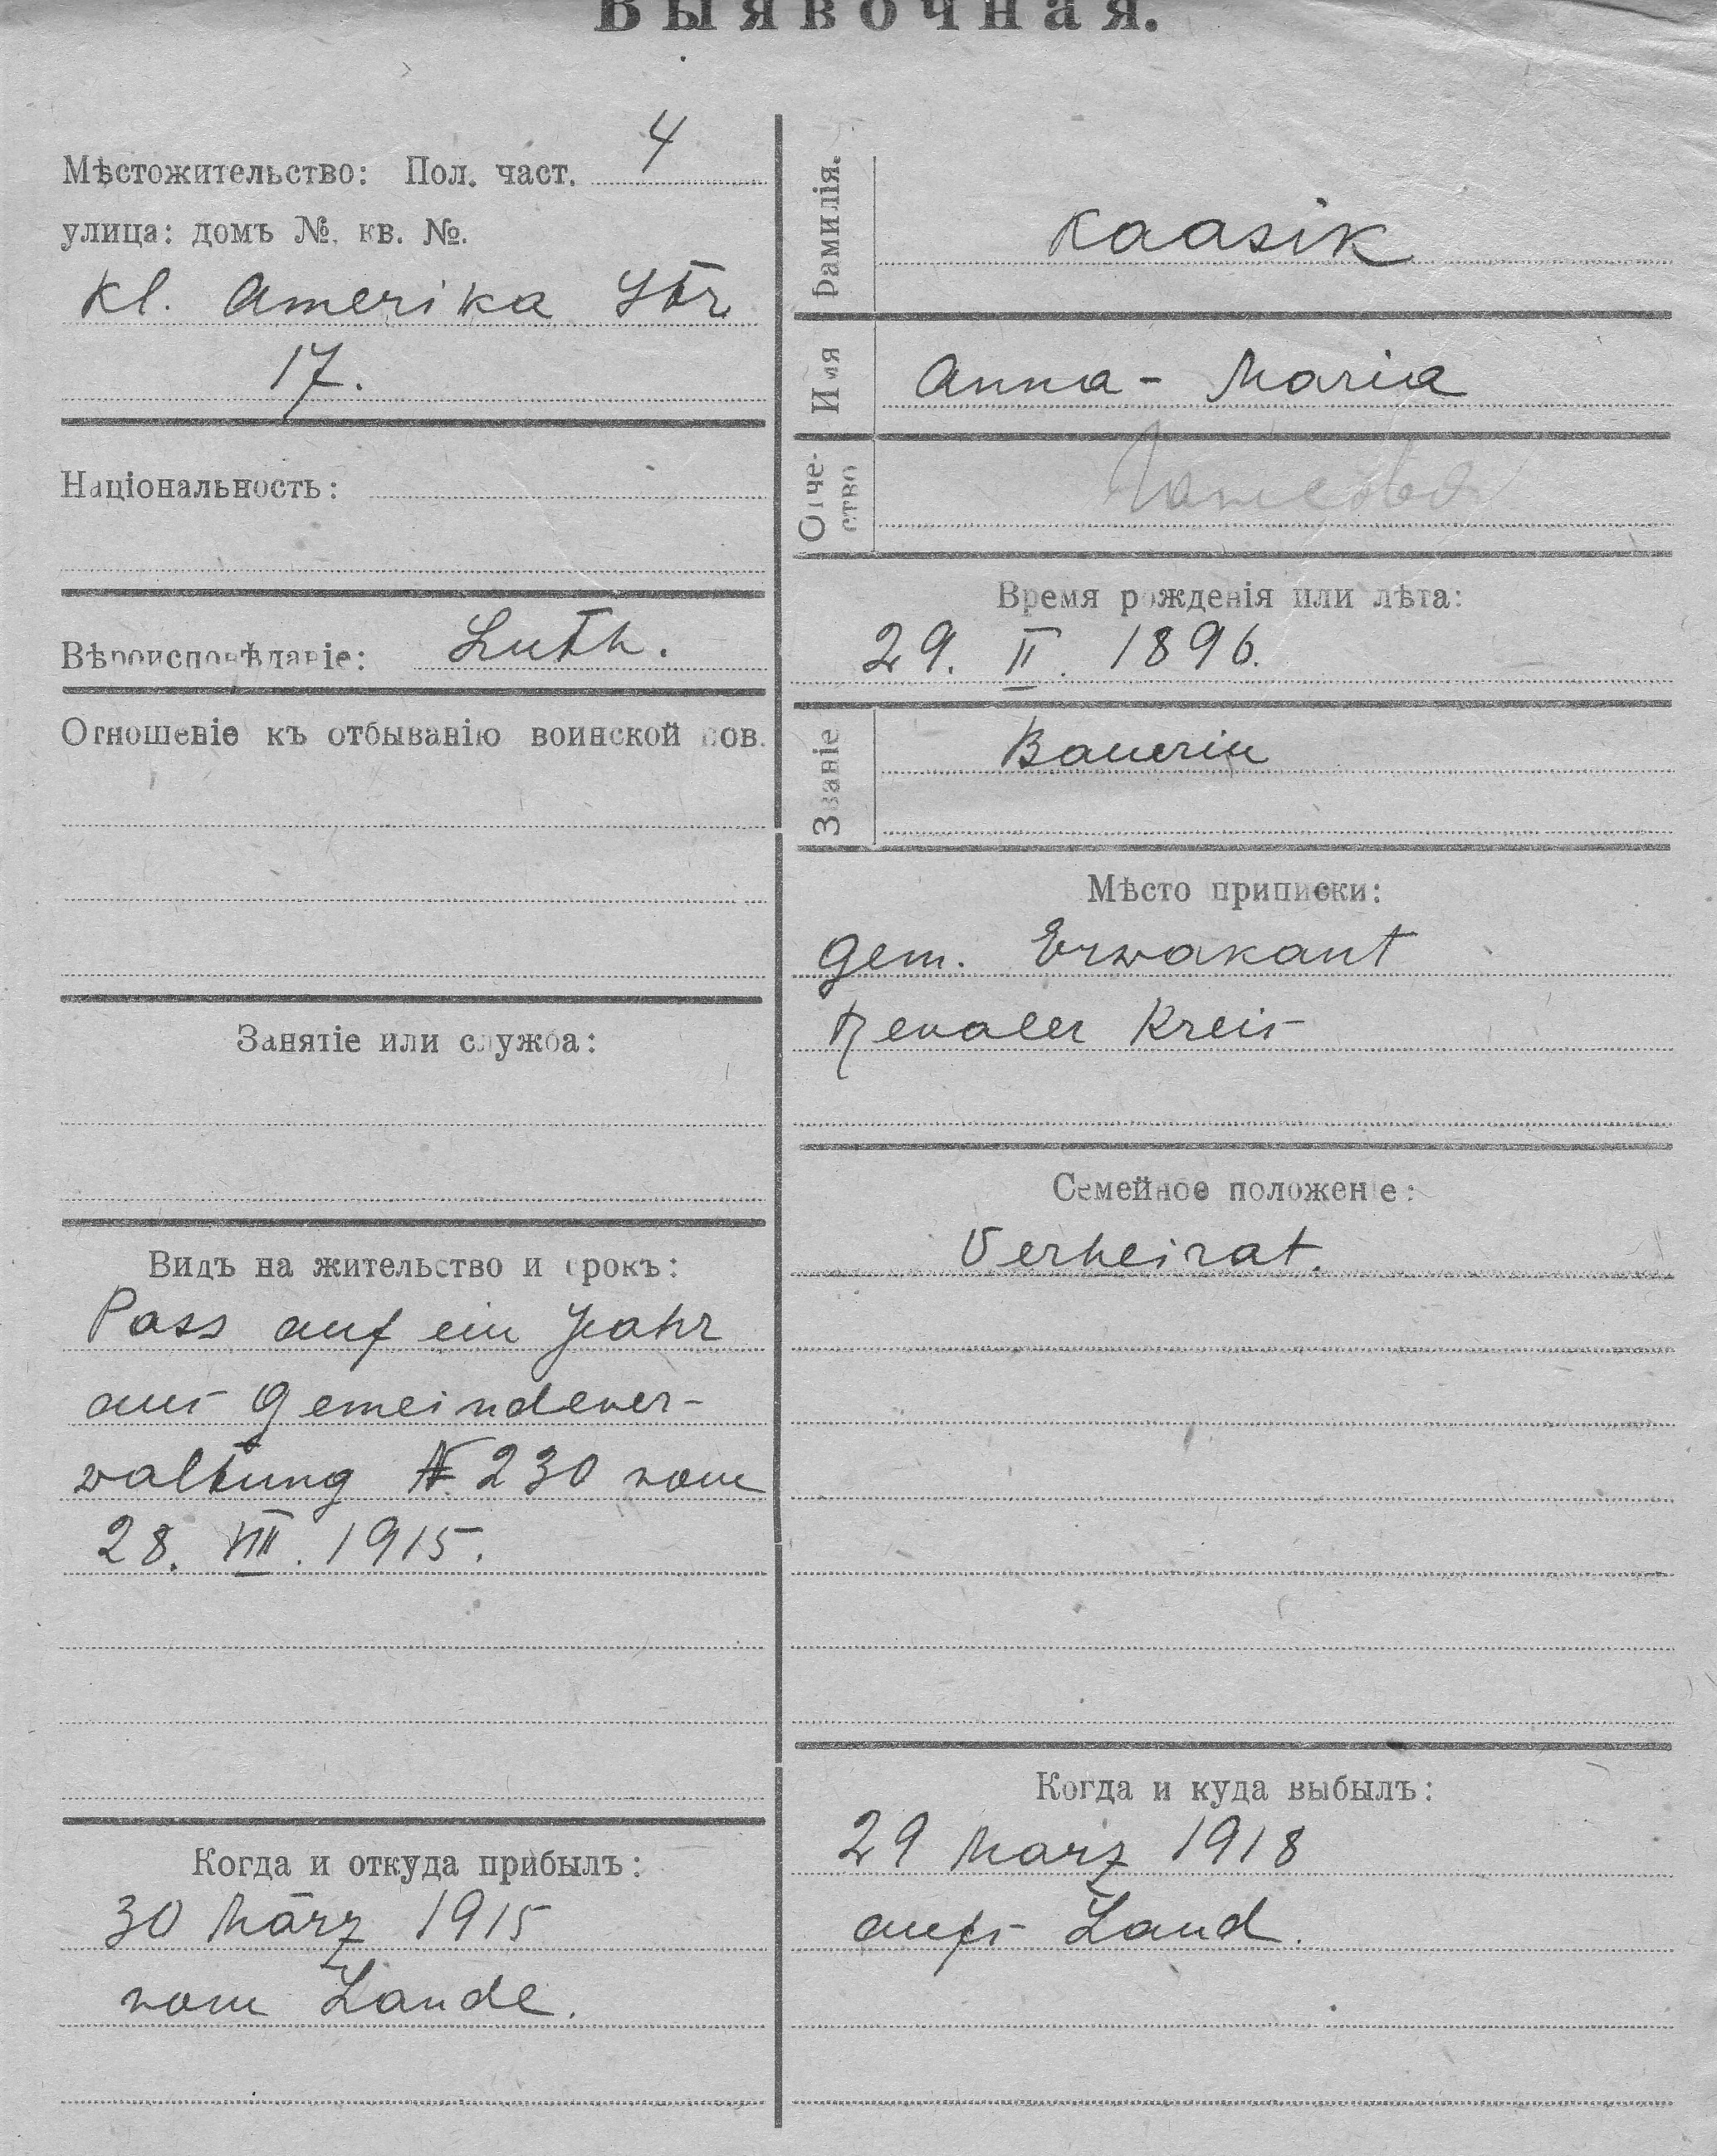 Выявочная.
Мѣстожительство: Пол. част. 4
улица: домъ №. кв. №.
Kl. Amerika Str.
17.
Національность:
Вѣроисповѣданіе: Luth.
Отношеніе къ отбыванію воинской пов.
Занятіе или служба:
Видъ на жительство и срокъ:
Pass auf ein Jahr
aus Gemeindever-
waltung N. 230 vom
28. VIII. 1915.
Когда и откуда прибылъ:
30 März 1915
vom Lande.
Фамилія. Kaasik
Имя Anna-Maria
Отче-
ство
Время рожденія или лѣта:
29. II. 1896.
Званіе Bauerin
Мѣсто приписки:
Gem. Erwakant
Revaler Kreis
Семейное положеніе:
Verheirat.
Когда и куда выбылъ:
29 März 1918
aufs Land.